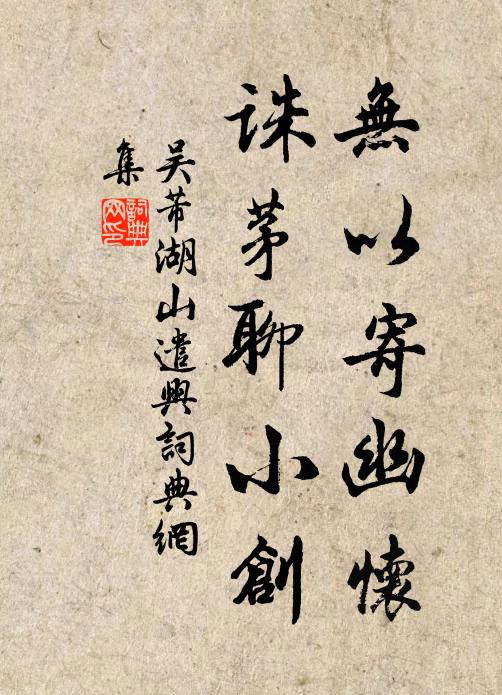 無以寄幽懷
誅茅聊小創
吴芾湖山遣興詞典網
集
詞典
网印